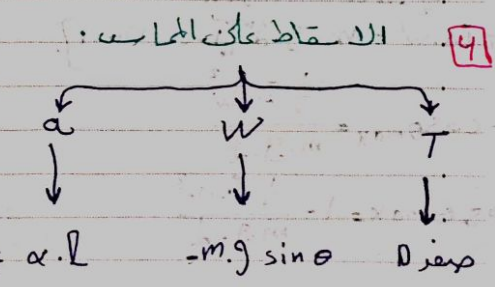 4 الاسقاط على المماس :
a W T
α.l -m.g sin θ صفر 0